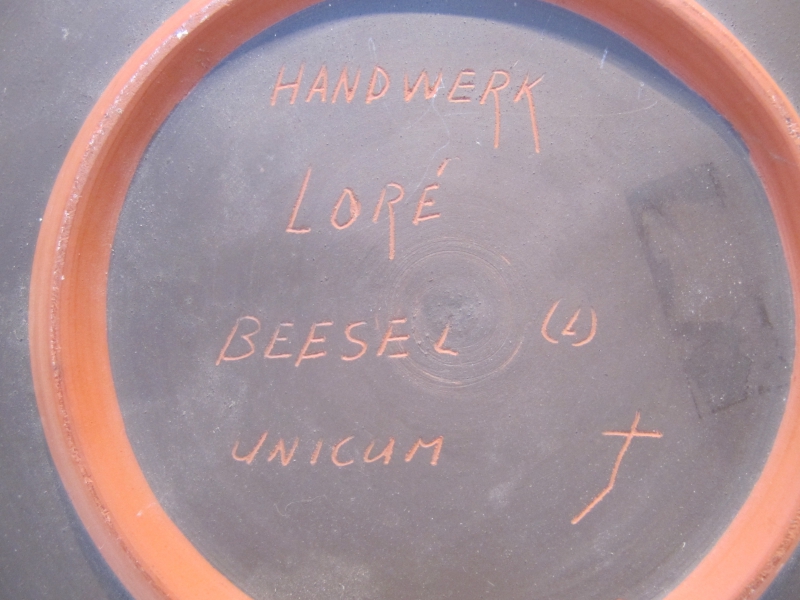 HANDWERK
LORÉ
BEESEL (L)
UNICUM